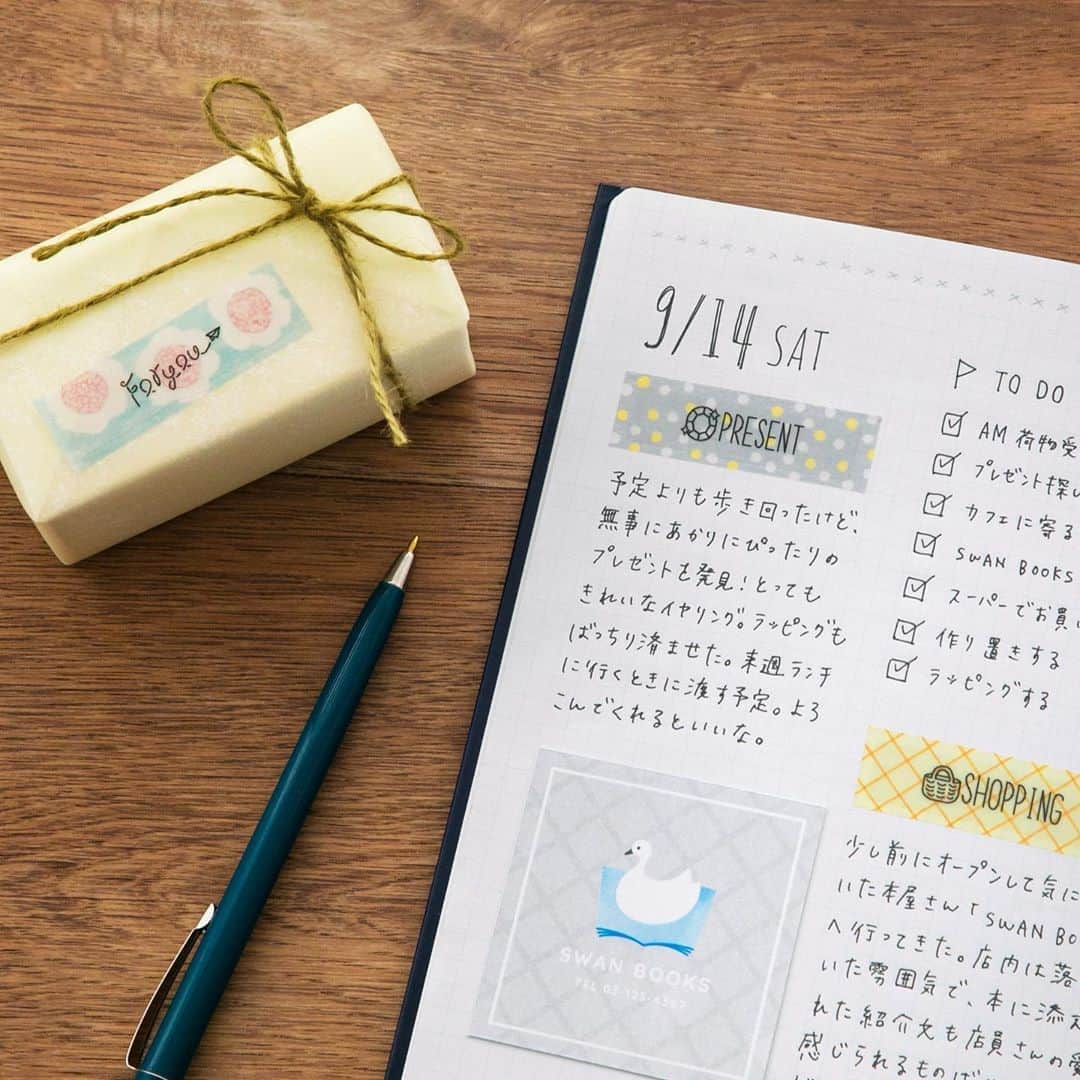 For you
9/14 SAT
PRESENT
予定よりも歩き回ったけど、
無事にあかりにぴったりの
プレゼントを発見！とっても
きれいなイヤリング。ラッピングも
ばっちり済ませた。来週ランチ
に行くときに渡す予定。よろ
こんでくれるといいな。
SWAN BOOKS
TEL 03-125-4567
TO DO
AM 荷物受
プレゼント探し
カフェに寄る
SWAN BOOKS
スーパーでお買い
作り置きする
ラッピングする
SHOPPING
少し前にオープンして気に
いた本屋さん「SWAN BO
へ行ってきた。店内は落
いた雰囲気で、本に添え
れた紹介文も店員さんの愛
感じられるものば